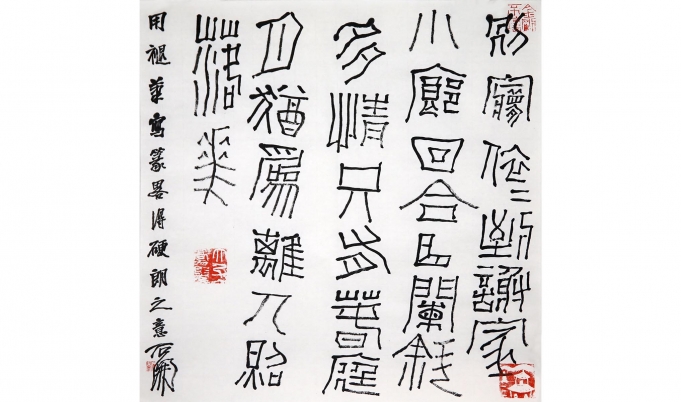 別夢依〻到謝家
小廊回合曲闌斜
多情只有春庭
月猶爲離人照
落花
用褪筆寫篆畧得硬朗之意石開